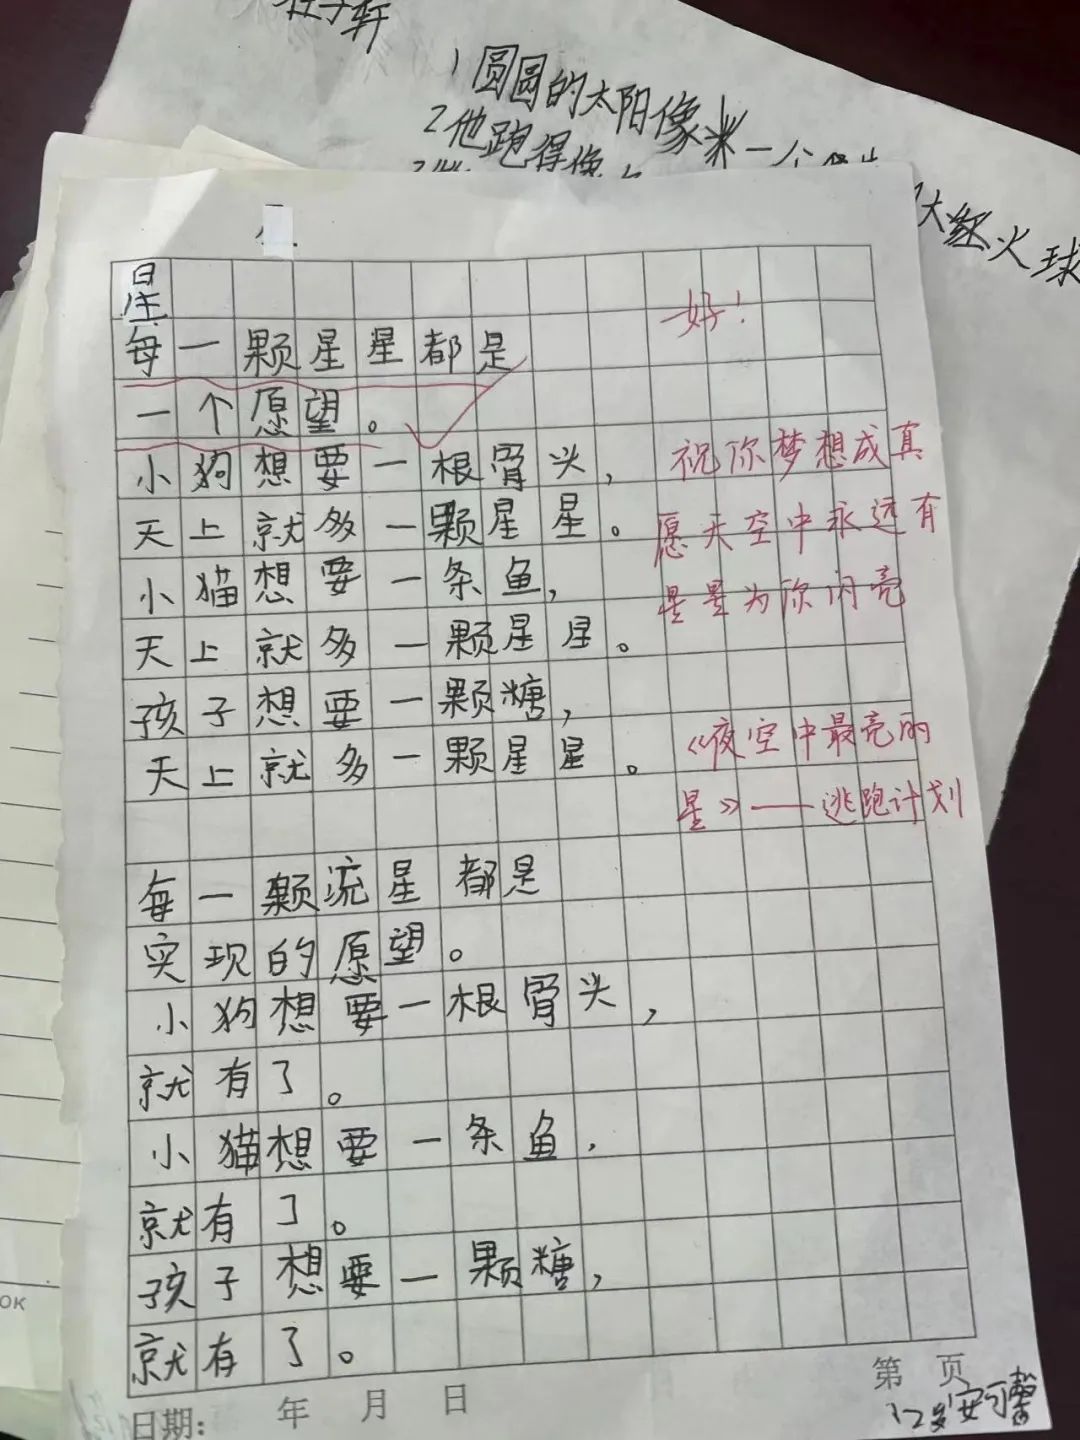 1 圆圆的太阳像
大红火球
2 他跑得像
星
每一颗星星都是
一个愿望。
小狗想要一根骨头，
天上就多一颗星星。
小猫想要一条鱼，
天上就多一颗星星。
孩子想要一颗糖，
天上就多一颗星星。
每一颗流星都是
实现的愿望。
小狗想要一根骨头，
就有了。
小猫想要一条鱼，
就有了。
孩子想要一颗糖，
就有了。
好！
祝你梦想成真
愿天空中永远有
星星为你闪亮
《夜空中最亮的
星》——逃跑计划
日期： 年 月 日
第 页
12岁安可馨
OK